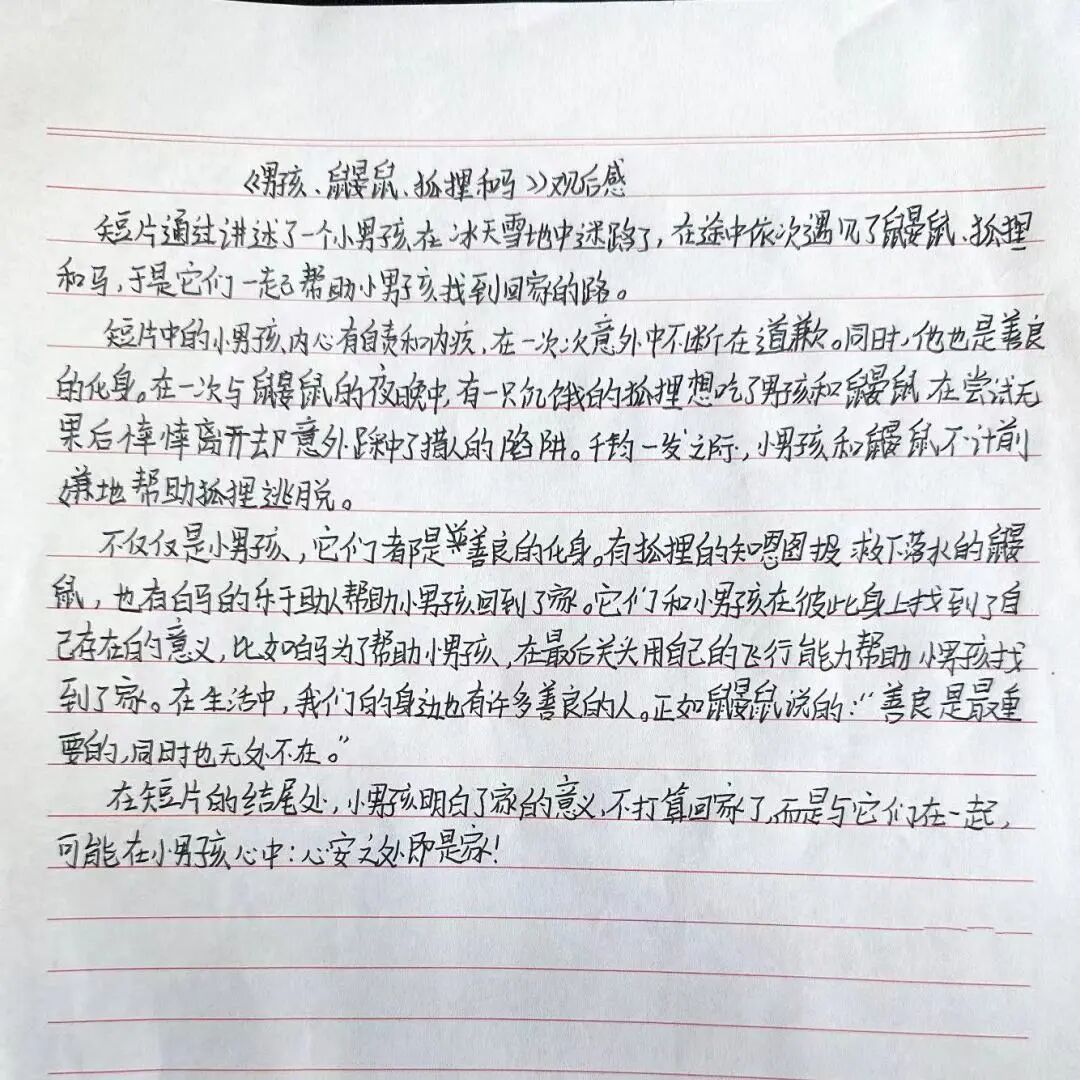 《男孩、鼹鼠、狐狸和马》观后感
短片通过讲述了一个小男孩在冰天雪地中迷路了，在途中依次遇见了鼹鼠、狐狸
和马，于是它们一起帮助小男孩找到回家的路。
短片中的小男孩内心有自责和内疚，在一次次意外中不断在道歉。同时，他也是善良
的化身。在一次与鼹鼠的夜晚中，有一只饥饿的狐狸想吃了男孩和鼹鼠在尝试无
果后悻悻离开却意外踩中了猎人的陷阱。千钧一发之际，小男孩和鼹鼠不计前
嫌地帮助狐狸逃脱。
不仅仅是小男孩，它们都是善良的化身。有狐狸的知恩图报救下落水的鼹
鼠，也有白马的乐于助人帮助小男孩回到了家。它们和小男孩在彼此身上找到了自
己存在的意义，比如白马为了帮助小男孩，在最后关头用自己的飞行能力帮助小男孩找
到了家。在生活中，我们的身边也有许多善良的人。正如鼹鼠说的：“善良是最重
要的，同时也无处不在。”
在短片的结尾处，小男孩明白了家的意义，不打算回家了，而是与它们在一起，
可能在小男孩心中：心安之处即是家！